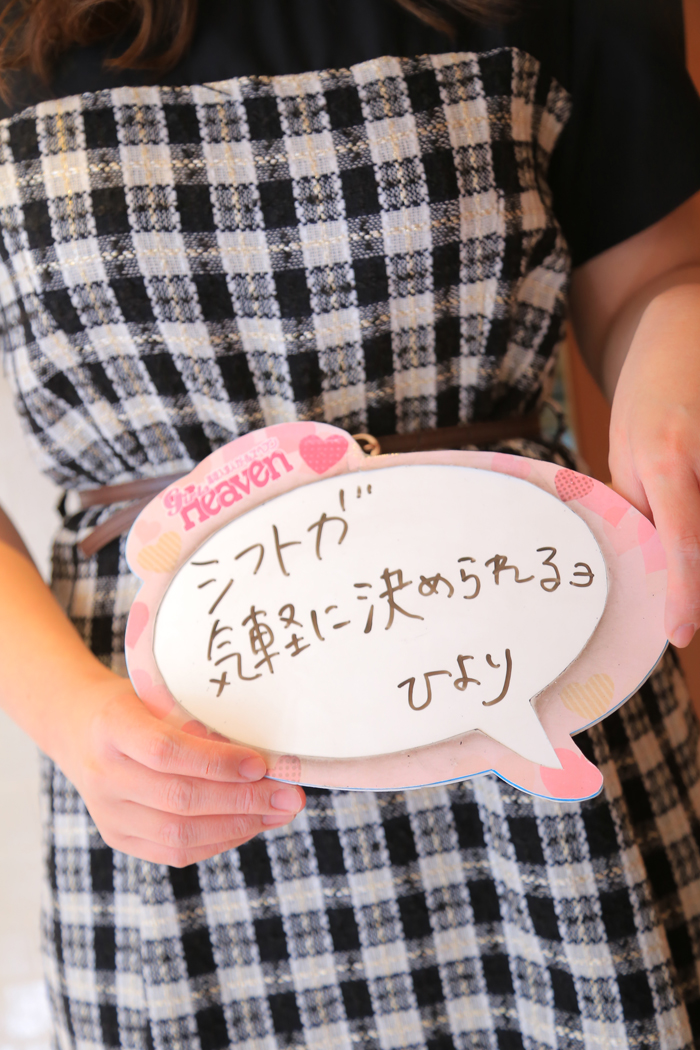 Heaven
シフトが
気軽に決められるヨ
ひより